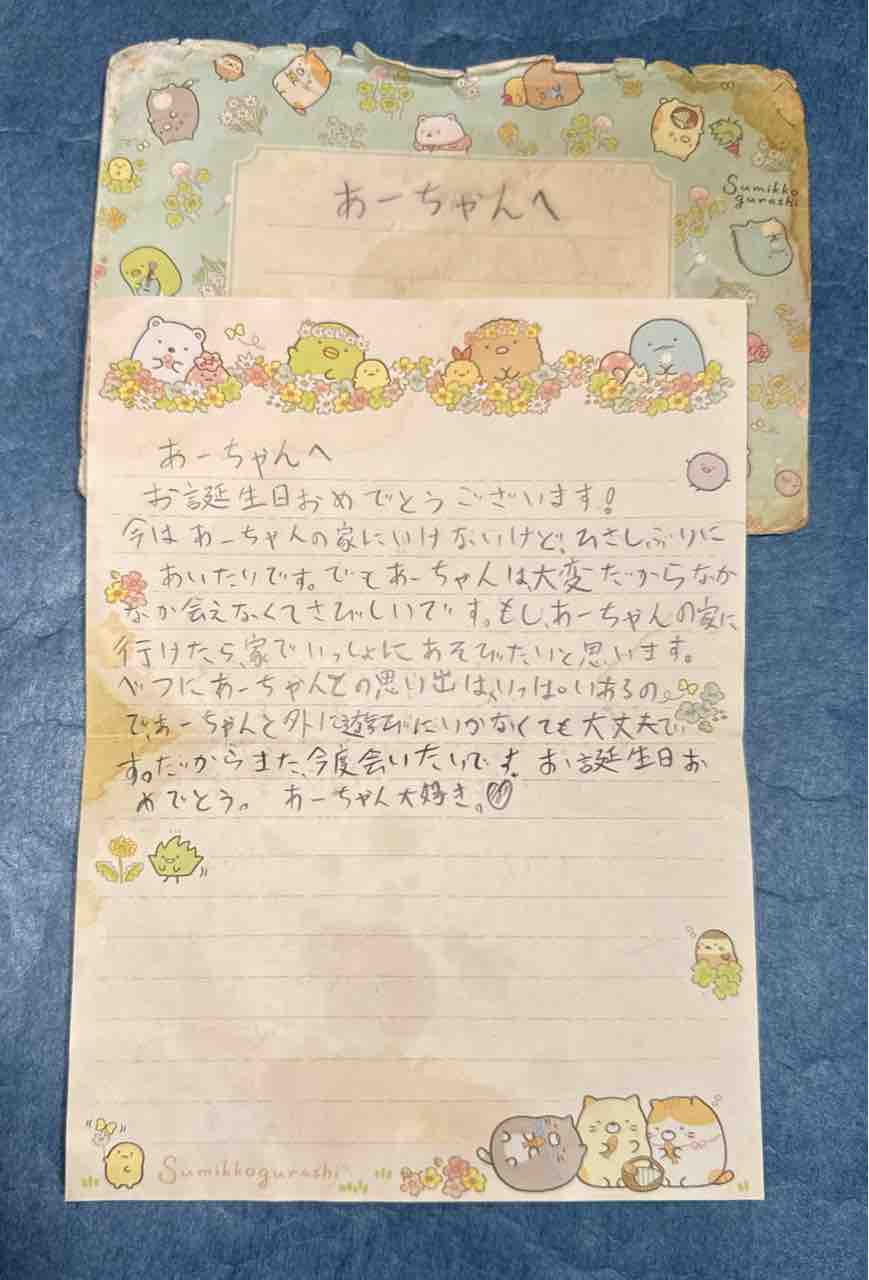 あーちゃんへ
Sumikko
gurashi
あーちゃんへ
お誕生日おめでとうございます!
今はあーちゃんの家にいけないけど、ひさしぶりに
あいたいです。でもあーちゃんは大変だからなか
なか会えなくてさびしいです。もし、あーちゃんの家に
行けたら、家でいっしょにあそびたいと思います。
べつにあーちゃんとの思い出は、いっぱいあるの
で、あーちゃんと外に遊びにいかなくても大丈夫で
す。だからまた、今度会いたいです。お誕生日お
めでとう。 あーちゃん大好き。♡
Sumikkogurashi